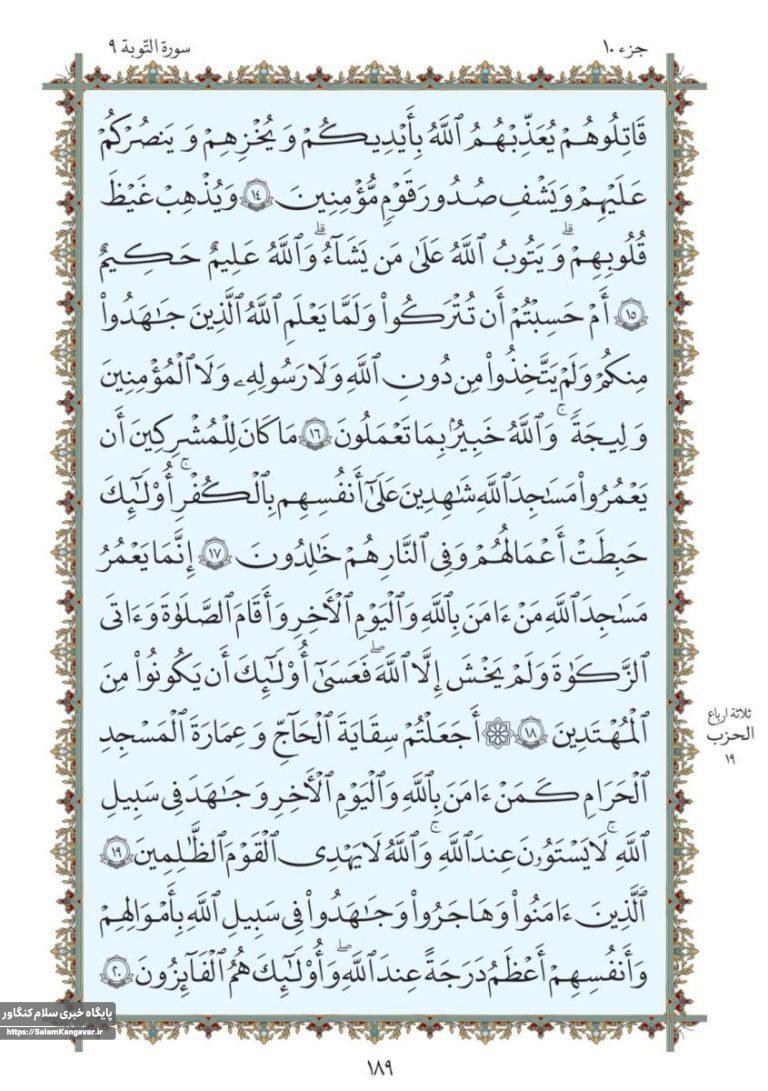 جزء ۱۰
سورة التّوبة ۹
قَاتِلُوهُمْ يُعَذِّبْهُمُ ٱللَّهُ بِأَيْدِيكُمْ وَيُخْزِهِمْ وَيَنصُرْكُمْ
عَلَيْهِمْ وَيَشْفِ صُدُورَ قَوْمٍ مُّؤْمِنِينَ ١٤ وَيُذْهِبْ غَيْظَ
قُلُوبِهِمْ ۗ وَيَتُوبُ ٱللَّهُ عَلَىٰ مَن يَشَآءُ ۗ وَٱللَّهُ عَلِيمٌ حَكِيمٌ
١٥ أَمْ حَسِبْتُمْ أَن تُتْرَكُوا۟ وَلَمَّا يَعْلَمِ ٱللَّهُ ٱلَّذِينَ جَـٰهَدُوا۟
مِنكُمْ وَلَمْ يَتَّخِذُوا۟ مِن دُونِ ٱللَّهِ وَلَا رَسُولِهِۦ وَلَا ٱلْمُؤْمِنِينَ
وَلِيجَةً ۚ وَٱللَّهُ خَبِيرٌۢ بِمَا تَعْمَلُونَ ١٦ مَا كَانَ لِلْمُشْرِكِينَ أَن
يَعْمُرُوا۟ مَسَـٰجِدَ ٱللَّهِ شَـٰهِدِينَ عَلَىٰٓ أَنفُسِهِم بِٱلْكُفْرِ ۚ أُو۟لَـٰٓئِكَ
حَبِطَتْ أَعْمَالُهُمْ وَفِى ٱلنَّارِ هُمْ خَـٰلِدُونَ ١٧ إِنَّمَا يَعْمُرُ
مَسَـٰجِدَ ٱللَّهِ مَنْ ءَامَنَ بِٱللَّهِ وَٱلْيَوْمِ ٱلْأَخِرِ وَأَقَامَ ٱلصَّلَوٰةَ وَءَاتَى
ٱلزَّكَوٰةَ وَلَمْ يَخْشَ إِلَّا ٱللَّهَ ۖ فَعَسَىٰٓ أُو۟لَـٰٓئِكَ أَن يَكُونُوا۟ مِنَ
ٱلْمُهْتَدِينَ ١٨ ۞ أَجَعَلْتُمْ سِقَايَةَ ٱلْحَآجِّ وَعِمَارَةَ ٱلْمَسْجِدِ
ٱلْحَرَامِ كَمَنْ ءَامَنَ بِٱللَّهِ وَٱلْيَوْمِ ٱلْأَخِرِ وَجَـٰهَدَ فِى سَبِيلِ
ٱللَّهِ ۚ لَا يَسْتَوُۥنَ عِندَ ٱللَّهِ ۗ وَٱللَّهُ لَا يَهْدِى ٱلْقَوْمَ ٱلظَّـٰلِمِينَ ١٩
ٱلَّذِينَ ءَامَنُوا۟ وَهَاجَرُوا۟ وَجَـٰهَدُوا۟ فِى سَبِيلِ ٱللَّهِ بِأَمْوَٰلِهِمْ
وَأَنفُسِهِمْ أَعْظَمُ دَرَجَةً عِندَ ٱللَّهِ ۚ وَأُو۟لَـٰٓئِكَ هُمُ ٱلْفَآئِزُونَ ٢٠
ثلاثة ارباع
الحزب
۱۹
۱۸۹
پایگاه خبری سلام کنگاور
https://SalamKangavar.ir